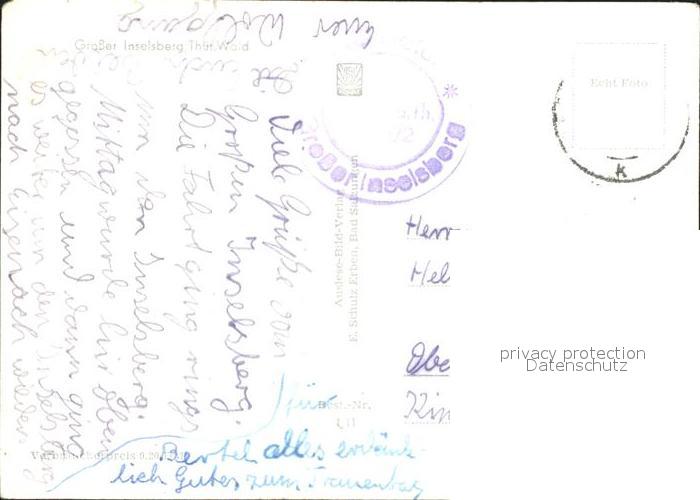 Großer Inselsberg, Thür. Wald
Viele Grüße vom
Großen Inselsberg.
Die Fahrt ging rings
um den Inselsberg.
Mittag wurde hier oben
gegessen und dann ging
es weiter um den Inselsberg
nach Eisenach wieder
Euer Wolfgang
Großer Inselsberg
Auslese-Bild-Verlag
E. Schulz Erben, Bad Salzungen
Echt Foto
k
Herr
Hel
Obe
Kin
privacy protection
Datenschutz
Best.-Nr.
Verbraucherpreis 0.20
für
Bertel alles erdenk-
lich Gutes zum Frauentag